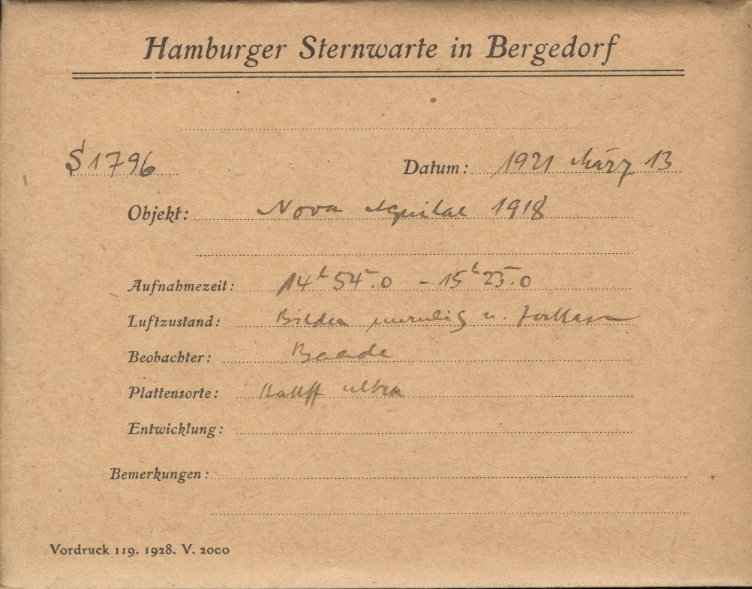 Hamburger Sternwarte in Bergedorf
S 1796 Datum: 1921 März 13
Objekt: Nova Aquilae 1918
Aufnahmezeit: 14h 54m.0 - 15h 25m.0
Luftzustand: Bilder unruhig u.
Beobachter: Baade
Plattensorte: Hauff ultra
Entwicklung:
Bemerkungen:
Vordruck 119. 1928. V. 2000